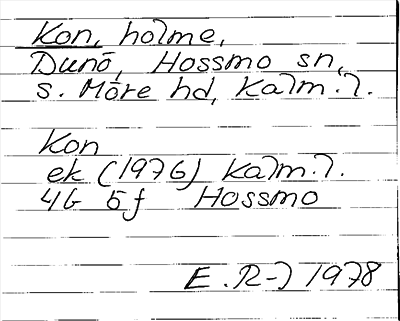 Kon, holme,
Dunö, Hossmo sn,
S. Möre hd, Kalm. l.
Kon
ek (1976) Kalm. l.
4G 5f Hossmo
E. R-J 1978